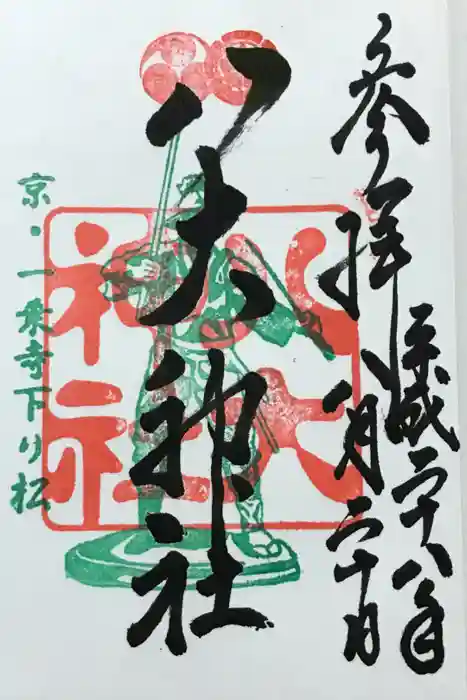 参拝
平成二十八年
八月二十日
八大神社
八大神社
京・一乗寺下り松